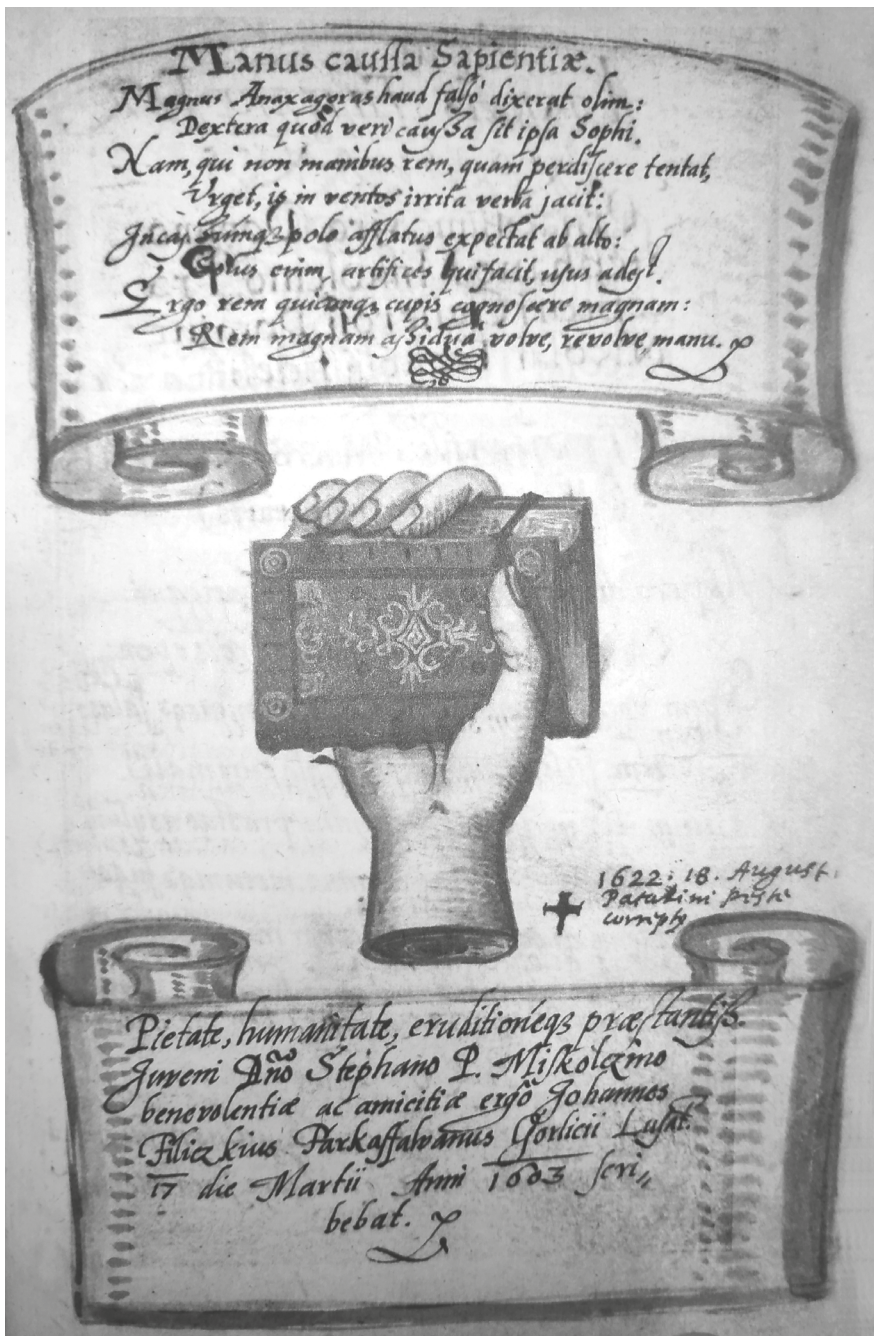 Manus caussa Sapientiæ.
Magnus Anaxagoras haud falsò dixerat olim:
Dextera quòd veri caussa sit ipsa Sophi.
Nam, qui non manibus rem, quam perdiscere tentat,
Urget, is in ventos irrita verba jacit:
polo afflatus expectat ab alto:
enim, artifices qui facit, usus adest.
Ergo rem quicunq; cupis cognoscere magnam:
Rem magnam assiduâ volve, revolve manu.
1622. 18. August.
Patakini peste
correptus
Pietate, humanitate, eruditioneq; præstantiss.
Juveni Dño Stephano P. Miskolczino
benevolentiæ ac amicitiæ ergò Johannes
Filiczkius Farkaffalvanus Gorlicii Lusat.
17 die Martii Anni 1603 scri„
bebat.